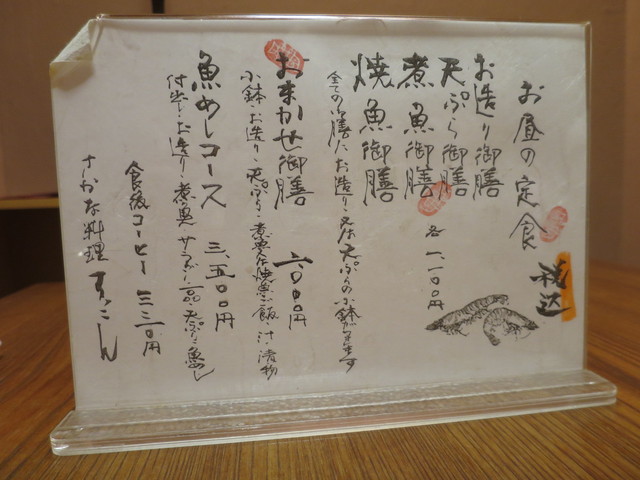 お昼の定食
税込
お造り御膳
天ぷら御膳
煮魚御膳
焼魚御膳
各一、一〇〇円
全ての御膳にお造り・又は天ぷらの小鉢がつきます
おまかせ御膳
小鉢・お造り・天ぷら・煮魚又は焼魚・ご飯・汁・漬物
魚めしコース 三、五〇〇円
付出し・お造り・煮魚
食後コーヒー 三三〇円
さかな料理